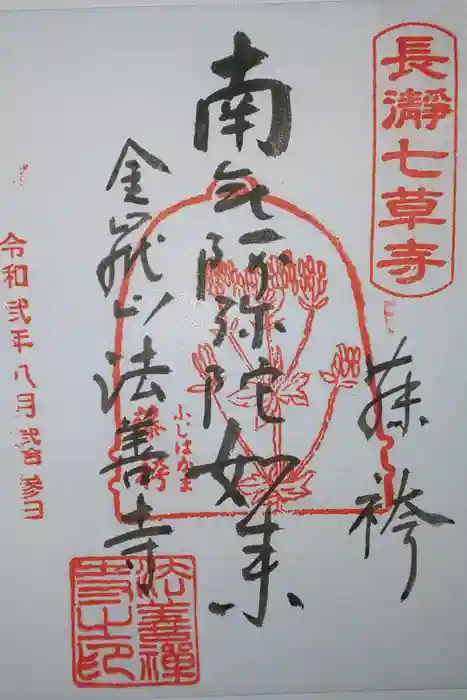 長瀞七草寺
藤袴
南無阿弥陀如来
ふじばかま
藤袴
金嶽山法善寺
令和弐年八月弐拾参日
法善禅寺之印